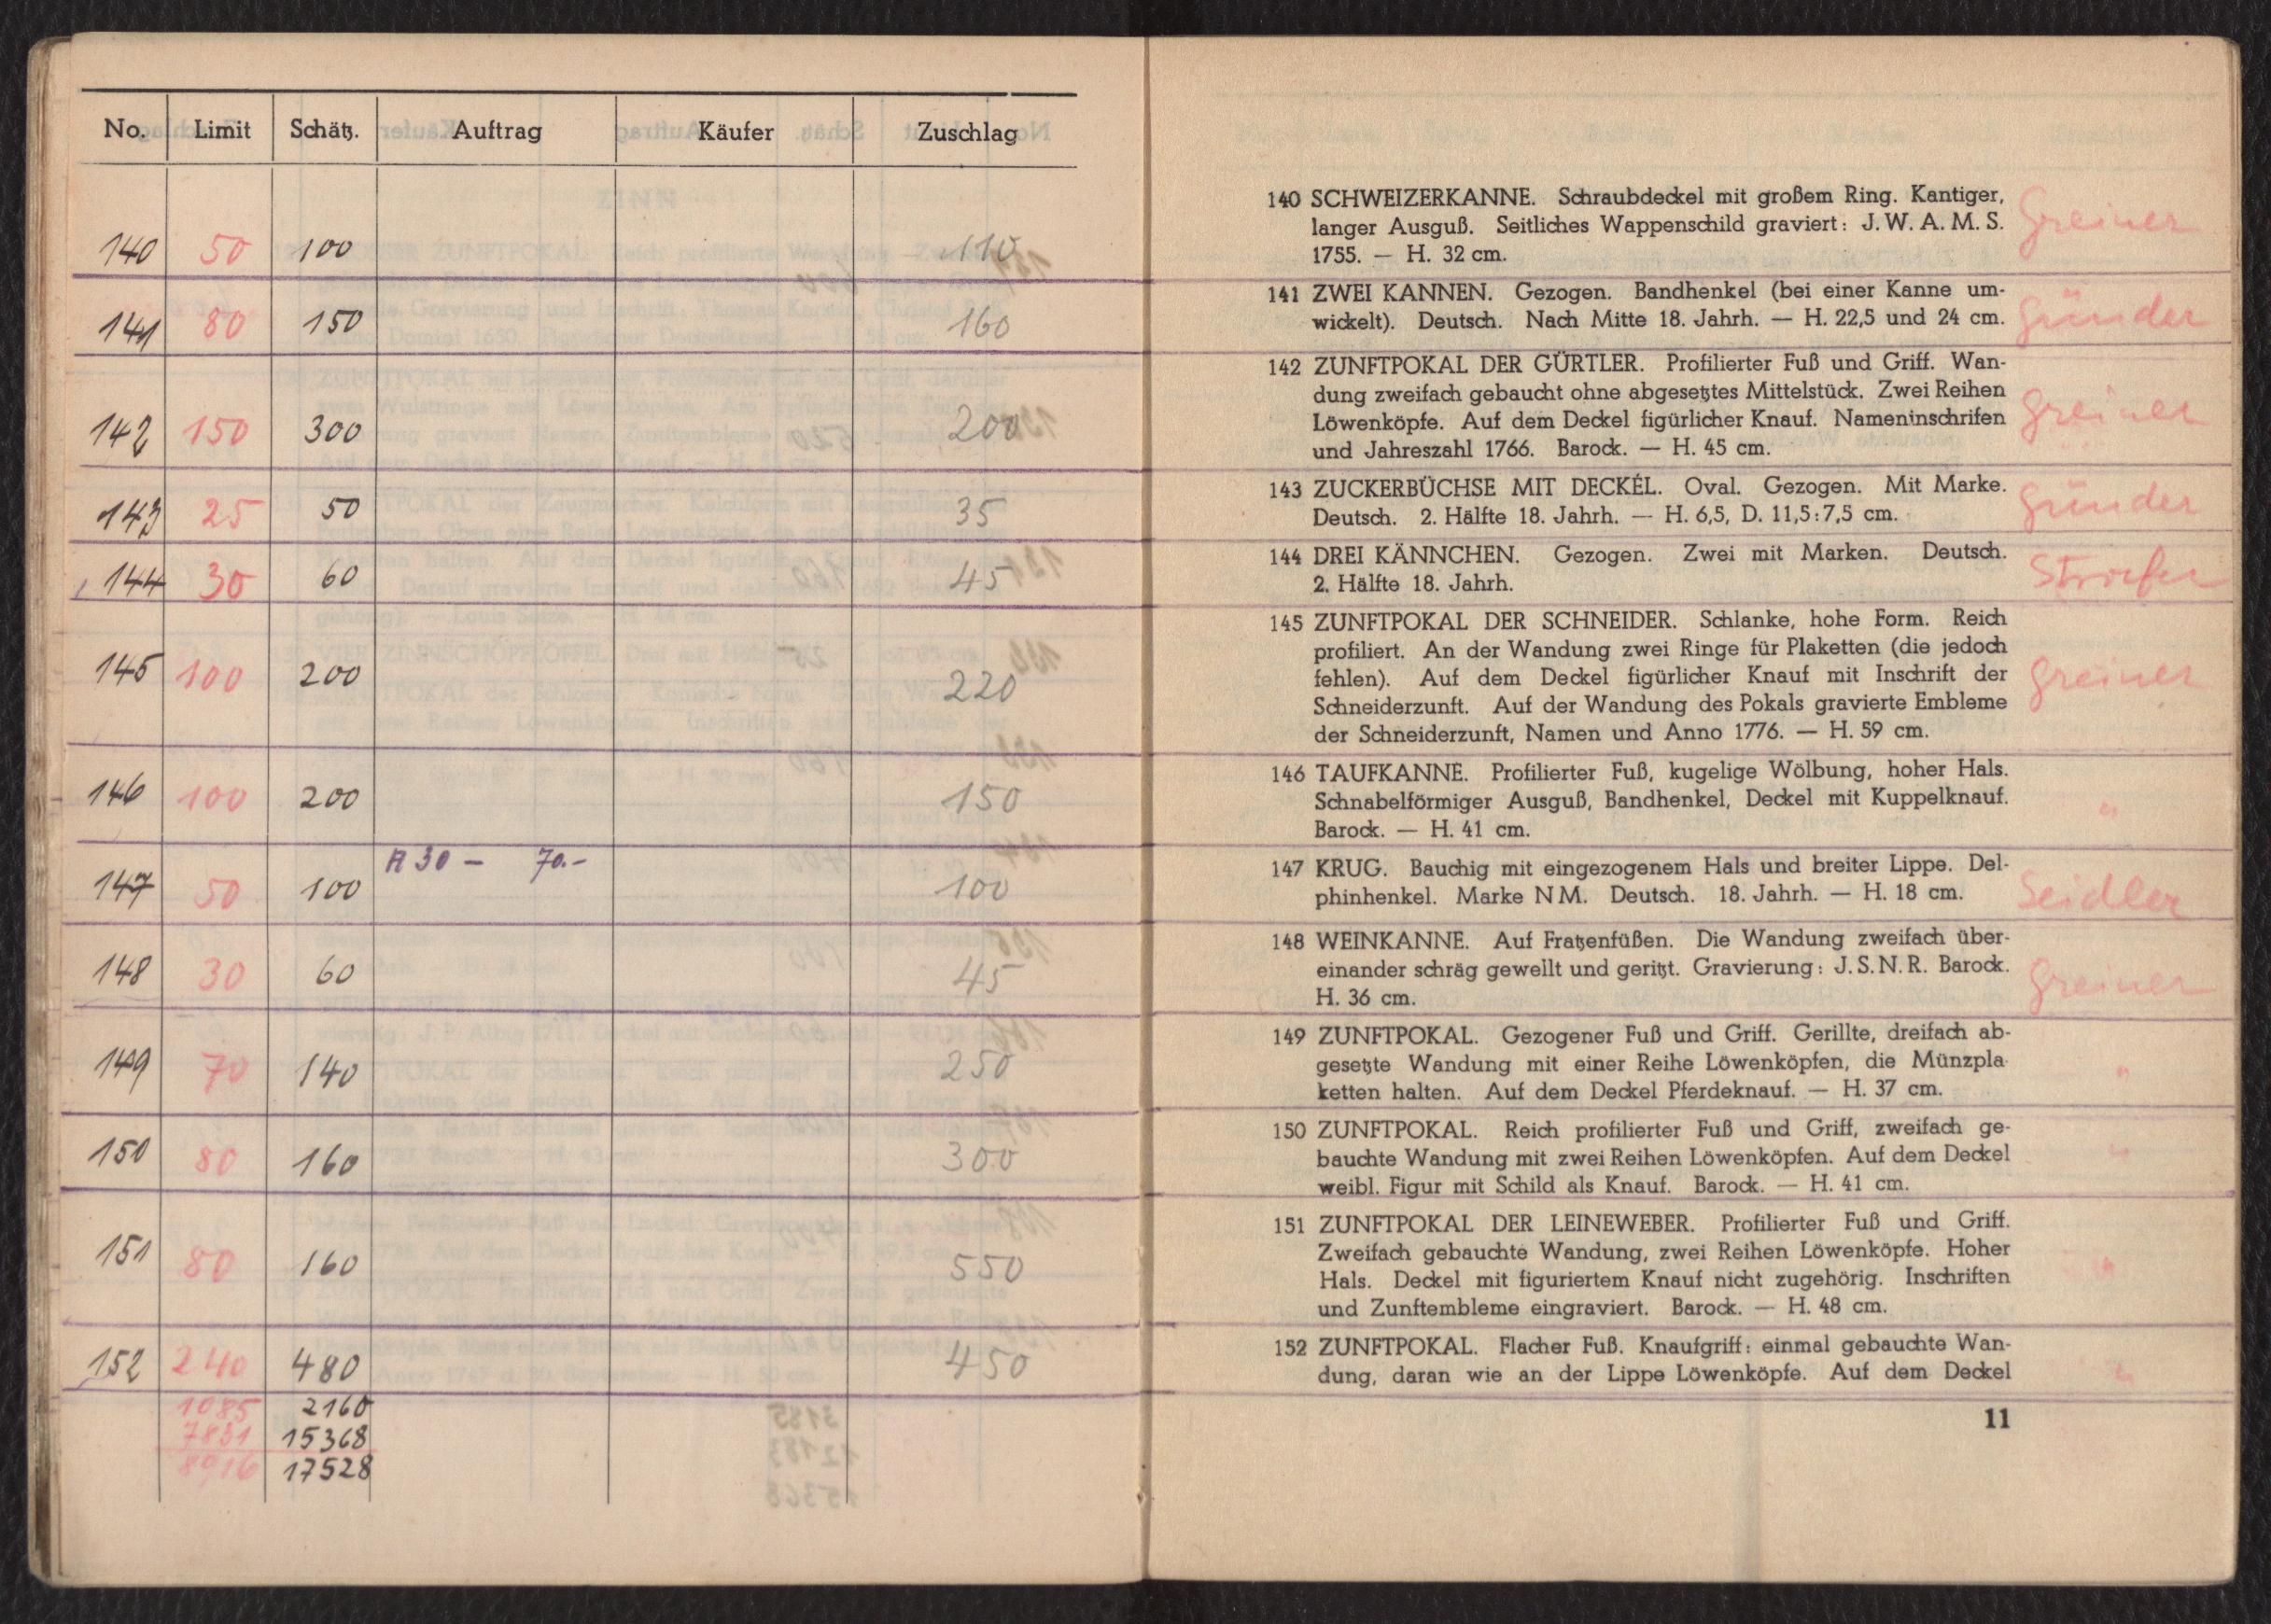 No. Limit Schätz. Auftrag Käufer Zuschlag
140 50 100 110
141 80 150 160
142 150 300 200
143 25 50 35
144 30 60 45
145 100 200 220
146 100 200 150
147 50 100 A 30 – 70.– 100
148 30 60 45
149 70 140 250
150 80 160 300
151 80 160 550
152 240 480 450
1085 2160
7831 15368
8916 17528
140 SCHWEIZERKANNE. Schraubdeckel mit großem Ring. Kantiger,
langer Ausguß. Seitliches Wappenschild graviert: J. W. A. M. S.
1755. — H. 32 cm.
Greiner
141 ZWEI KANNEN. Gezogen. Bandhenkel (bei einer Kanne um-
wickelt). Deutsch. Nach Mitte 18. Jahrh. — H. 22,5 und 24 cm.
Gründer
142 ZUNFTPOKAL DER GÜRTLER. Profilierter Fuß und Griff. Wan-
dung zweifach gebaucht ohne abgesetztes Mittelstück. Zwei Reihen
Löwenköpfe. Auf dem Deckel figürlicher Knauf. Nameninschrifen
und Jahreszahl 1766. Barock. — H. 45 cm.
Greiner
143 ZUCKERBÜCHSE MIT DECKEL. Oval. Gezogen. Mit Marke.
Deutsch. 2. Hälfte 18. Jahrh. — H. 6,5, D. 11,5:7,5 cm.
Gründer
144 DREI KÄNNCHEN. Gezogen. Zwei mit Marken. Deutsch.
2. Hälfte 18. Jahrh.
145 ZUNFTPOKAL DER SCHNEIDER. Schlanke, hohe Form. Reich
profiliert. An der Wandung zwei Ringe für Plaketten (die jedoch
fehlen). Auf dem Deckel figürlicher Knauf mit Inschrift der
Schneiderzunft. Auf der Wandung des Pokals gravierte Embleme
der Schneiderzunft, Namen und Anno 1776. — H. 59 cm.
Greiner
146 TAUFKANNE. Profilierter Fuß, kugelige Wölbung, hoher Hals.
Schnabelförmiger Ausguß, Bandhenkel, Deckel mit Kuppelknauf.
Barock. — H. 41 cm.
"
147 KRUG. Bauchig mit eingezogenem Hals und breiter Lippe. Del-
phinhenkel. Marke N M. Deutsch. 18. Jahrh. — H. 18 cm.
Seidler
148 WEINKANNE. Auf Fratzenfüßen. Die Wandung zweifach über-
einander schräg gewellt und geritzt. Gravierung: J. S. N. R. Barock.
H. 36 cm.
Greiner
149 ZUNFTPOKAL. Gezogener Fuß und Griff. Gerillte, dreifach ab-
gesetzte Wandung mit einer Reihe Löwenköpfen, die Münzpla
ketten halten. Auf dem Deckel Pferdeknauf. — H. 37 cm.
"
150 ZUNFTPOKAL. Reich profilierter Fuß und Griff, zweifach ge-
bauchte Wandung mit zwei Reihen Löwenköpfen. Auf dem Deckel
weibl. Figur mit Schild als Knauf. Barock. — H. 41 cm.
"
151 ZUNFTPOKAL DER LEINEWEBER. Profilierter Fuß und Griff.
Zweifach gebauchte Wandung, zwei Reihen Löwenköpfe. Hoher
Hals. Deckel mit figuriertem Knauf nicht zugehörig. Inschriften
und Zunftembleme eingraviert. Barock. — H. 48 cm.
"
152 ZUNFTPOKAL. Flacher Fuß. Knaufgriff: einmal gebauchte Wan-
dung, daran wie an der Lippe Löwenköpfe. Auf dem Deckel
"
11